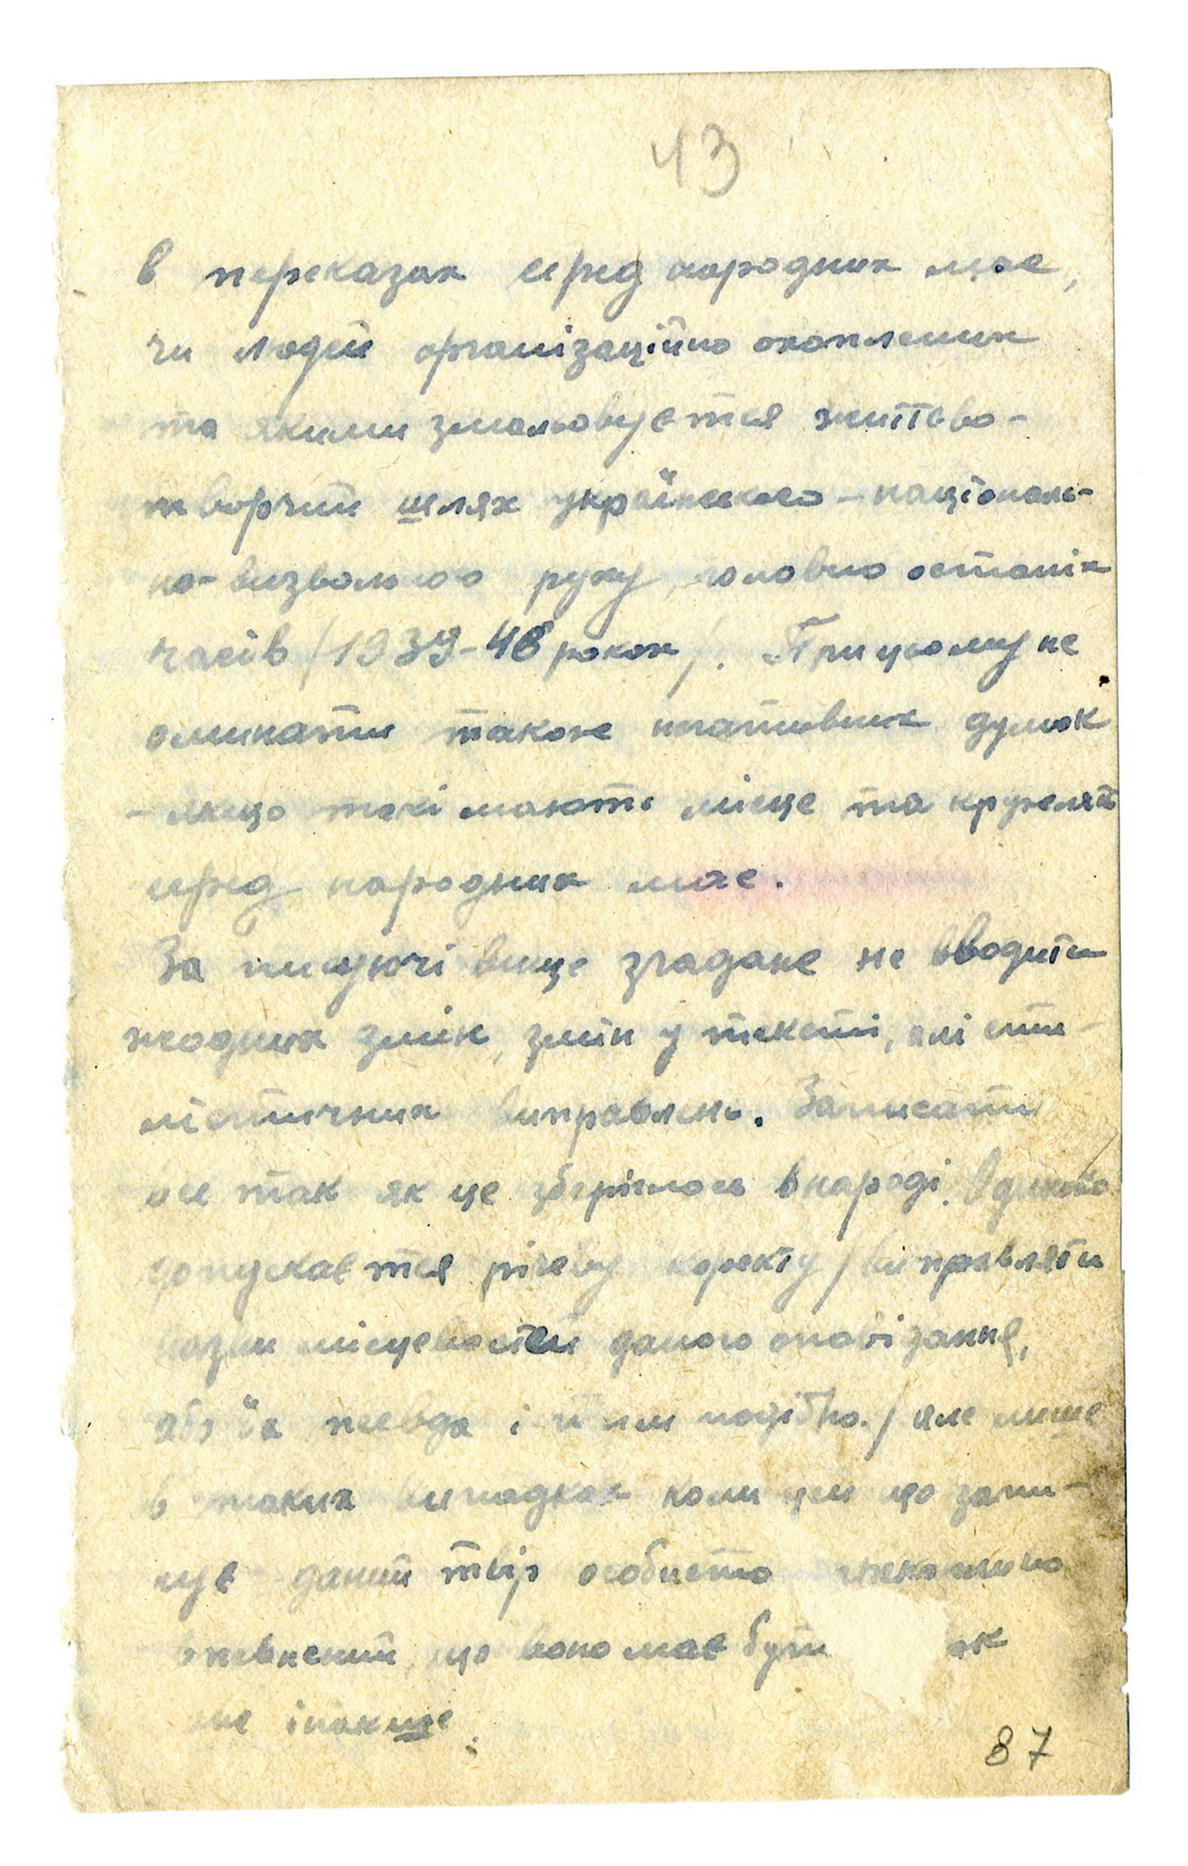 43
в переказах серед народних мас,
чи людей організаційно охоплених
та якими змальовується життєво-
творчий шлях українського-націоналі-
но-визвольного руху, головно останіх
часів /1939-48 роках/. При цьому не
оминати також негативних думок
- якщо такі мають місце та кружляють
серед народних мас.
За писуючі вище згадане не вводити
жодних змін, змін у тексті, ані сти-
лістичних виправлень. Записати
все так як це зберіглось в народі.
допускається річеву коректу /виправляти
назви місцевостей даного оповізання,
або їх псевда і тим подібно./ але лише
в таких випадках коли цей що запи-
сує даний твір особисто
впевнений, що воно має бути так
не інакше.
87